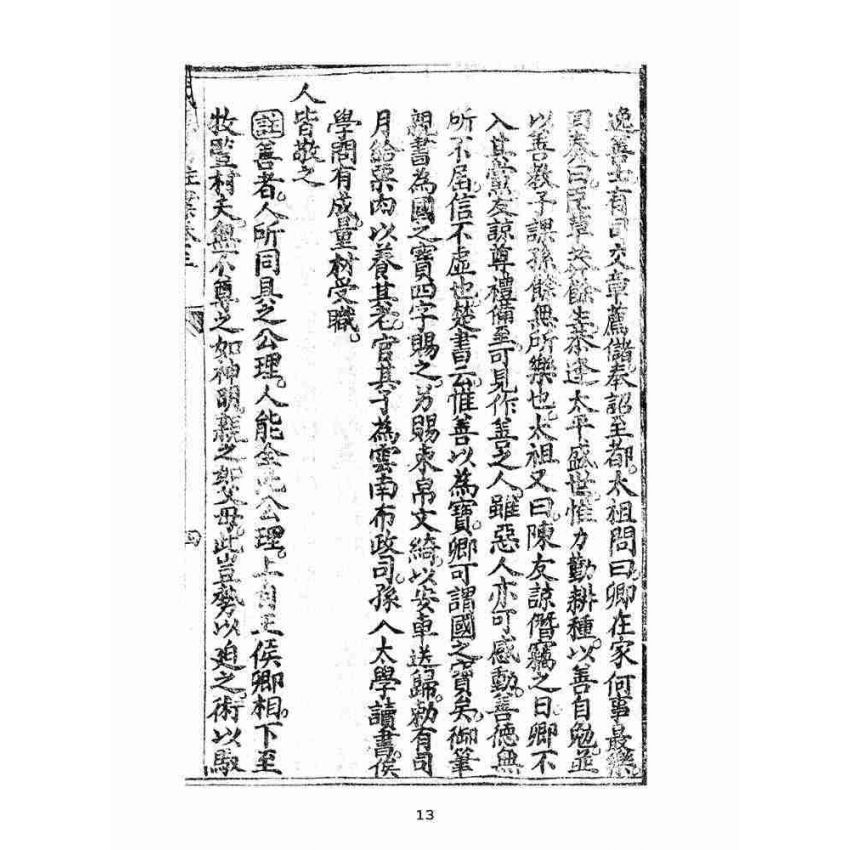 逸善士有司交章薦儲奉詔至都太祖問曰卿在家何事最樂
回奏曰臣草茅餘生忝逢太平盛世惟力勤耕種以善自勉並
以善教子課孫餘無所樂也太祖又曰陳友諒僭竊之日卿不
入其黨友諒尊禮備至可見作善之人雖惡人亦可感動善德無
所不屆信不虛也楚書云惟善以為寶卿可謂國之寶矣御筆
親書為國之寶四字賜之另賜束帛文綺以安車送歸勅有司
月給粟肉以養其老官其子為雲南布政司孫入太學讀書俟
學問有成量材受職
人皆敬之
註善者人所同具之公理人能全此公理上自王侯卿相下至
牧豎村夫無不尊之如神明親之如父母此豈勢以迫之術以馭
註案卷三
四
13